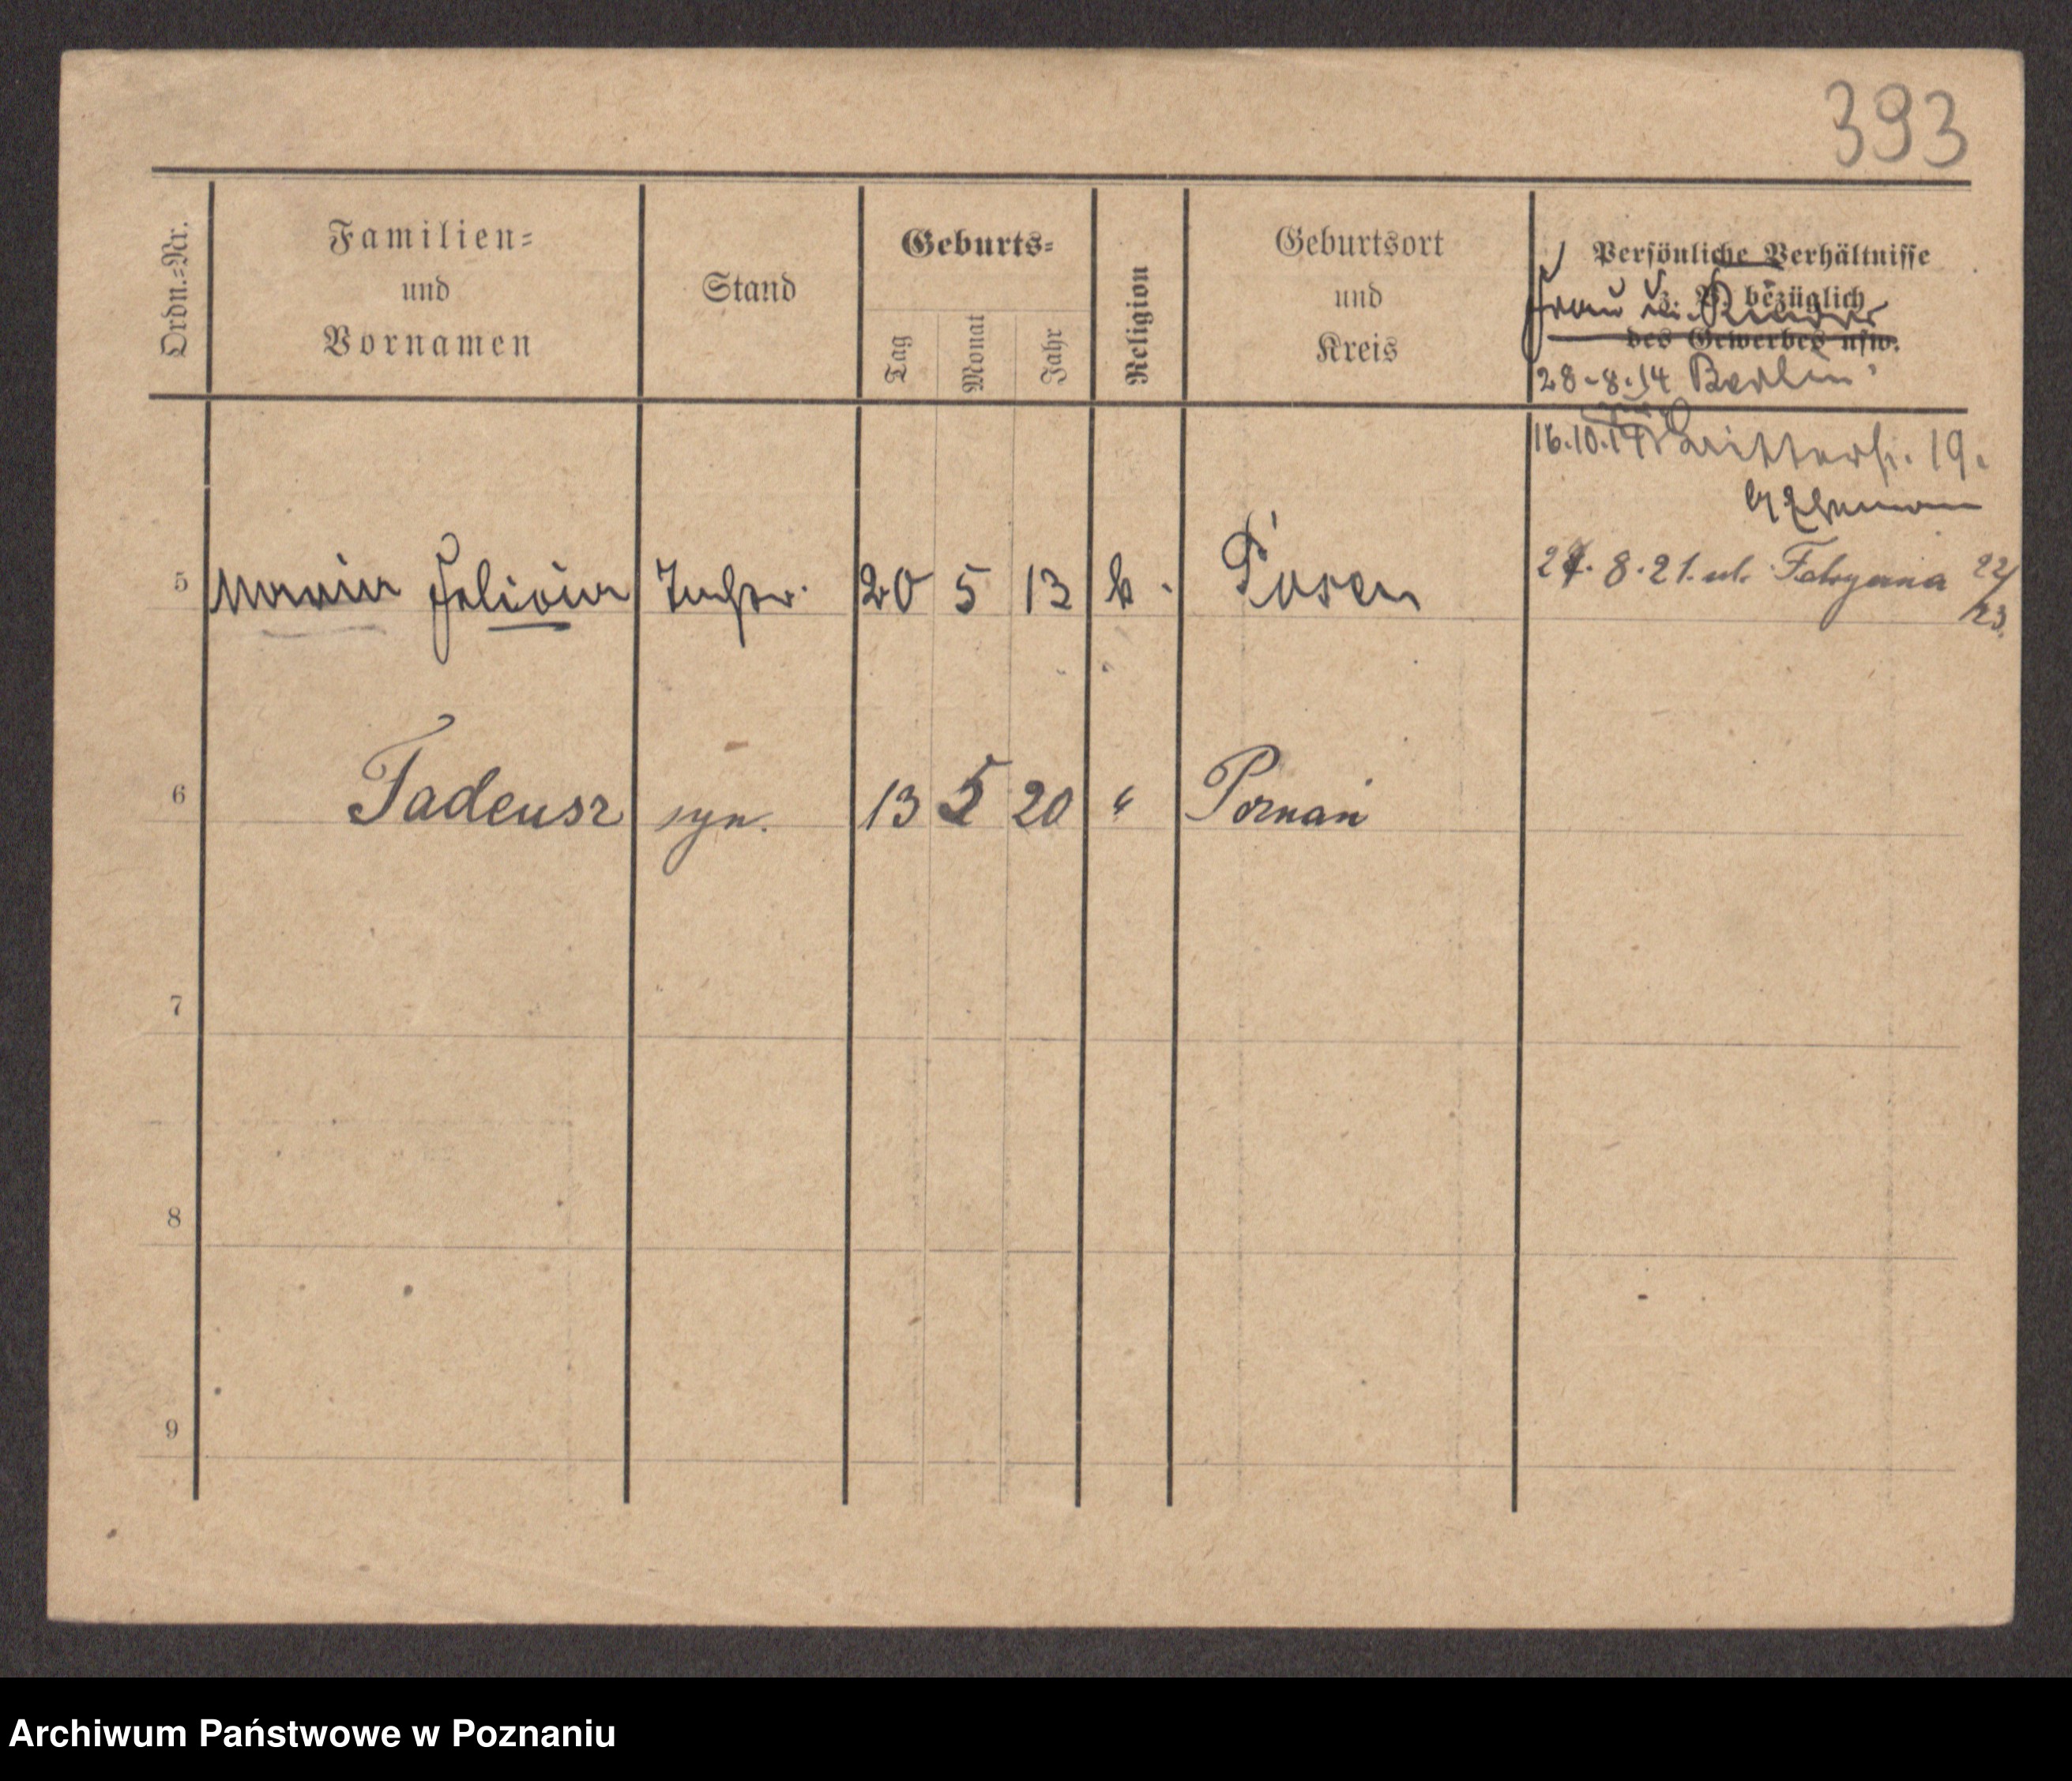 393
Ordn.=Nr.
Familien=
und
Vornamen
Stand
Geburts=
Tag
Monat
Jahr
Religion
Geburtsort
und
Kreis
Persönliche Verhältnisse
z. B. bezüglich
des Gewerbes usw.
Frau u. Kinder
28.8.14 Berlin
16.10.14 Ritterstr. 19.
b/ Ehemann
5 Maria Felicia Tochter 20 5 13 k. Posen 27.8.21. ul. Fabryczna 22/23.
6 Tadeusz syn. 13 5 20 " Poznań
7
8
9
Archiwum Państwowe w Poznaniu